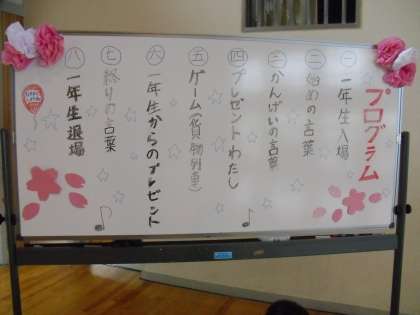 プログラム
一 一年生入場
二 始めの言葉
三 かんげいの言葉
四 プレゼントわたし
五 ゲーム(貨物列車)
六 一年生からのプレゼント
七 終りの言葉
八 一年生退場